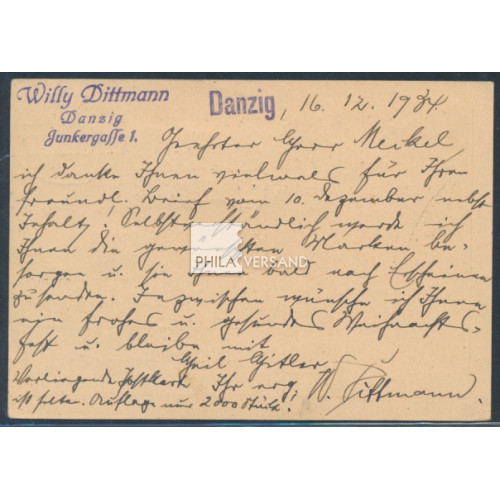 Willy Dittmann
Danzig
Junkergasse 1.
Danzig, 16. 12. 1934.
Geehrter Herr Meikel
ich danke Ihnen vielmals für Ihren
freundl. Brief vom 10. Dezember nebst
Inhalt. Selbstverständlich werde ich
Ihnen die gewünschten Marken be-
sorgen u. sie Ihnen bald nach Erscheinen
zusenden. Inzwischen wünsche ich Ihnen
ein frohes u. gesundes Weihnachts-
fest u. bleibe mit
Heil Hitler
Vorliegende Postkarte Ihr erg. W. Dittmann.
ist selten. Auflage nur 2000 Stück.
PHILA VERSAND